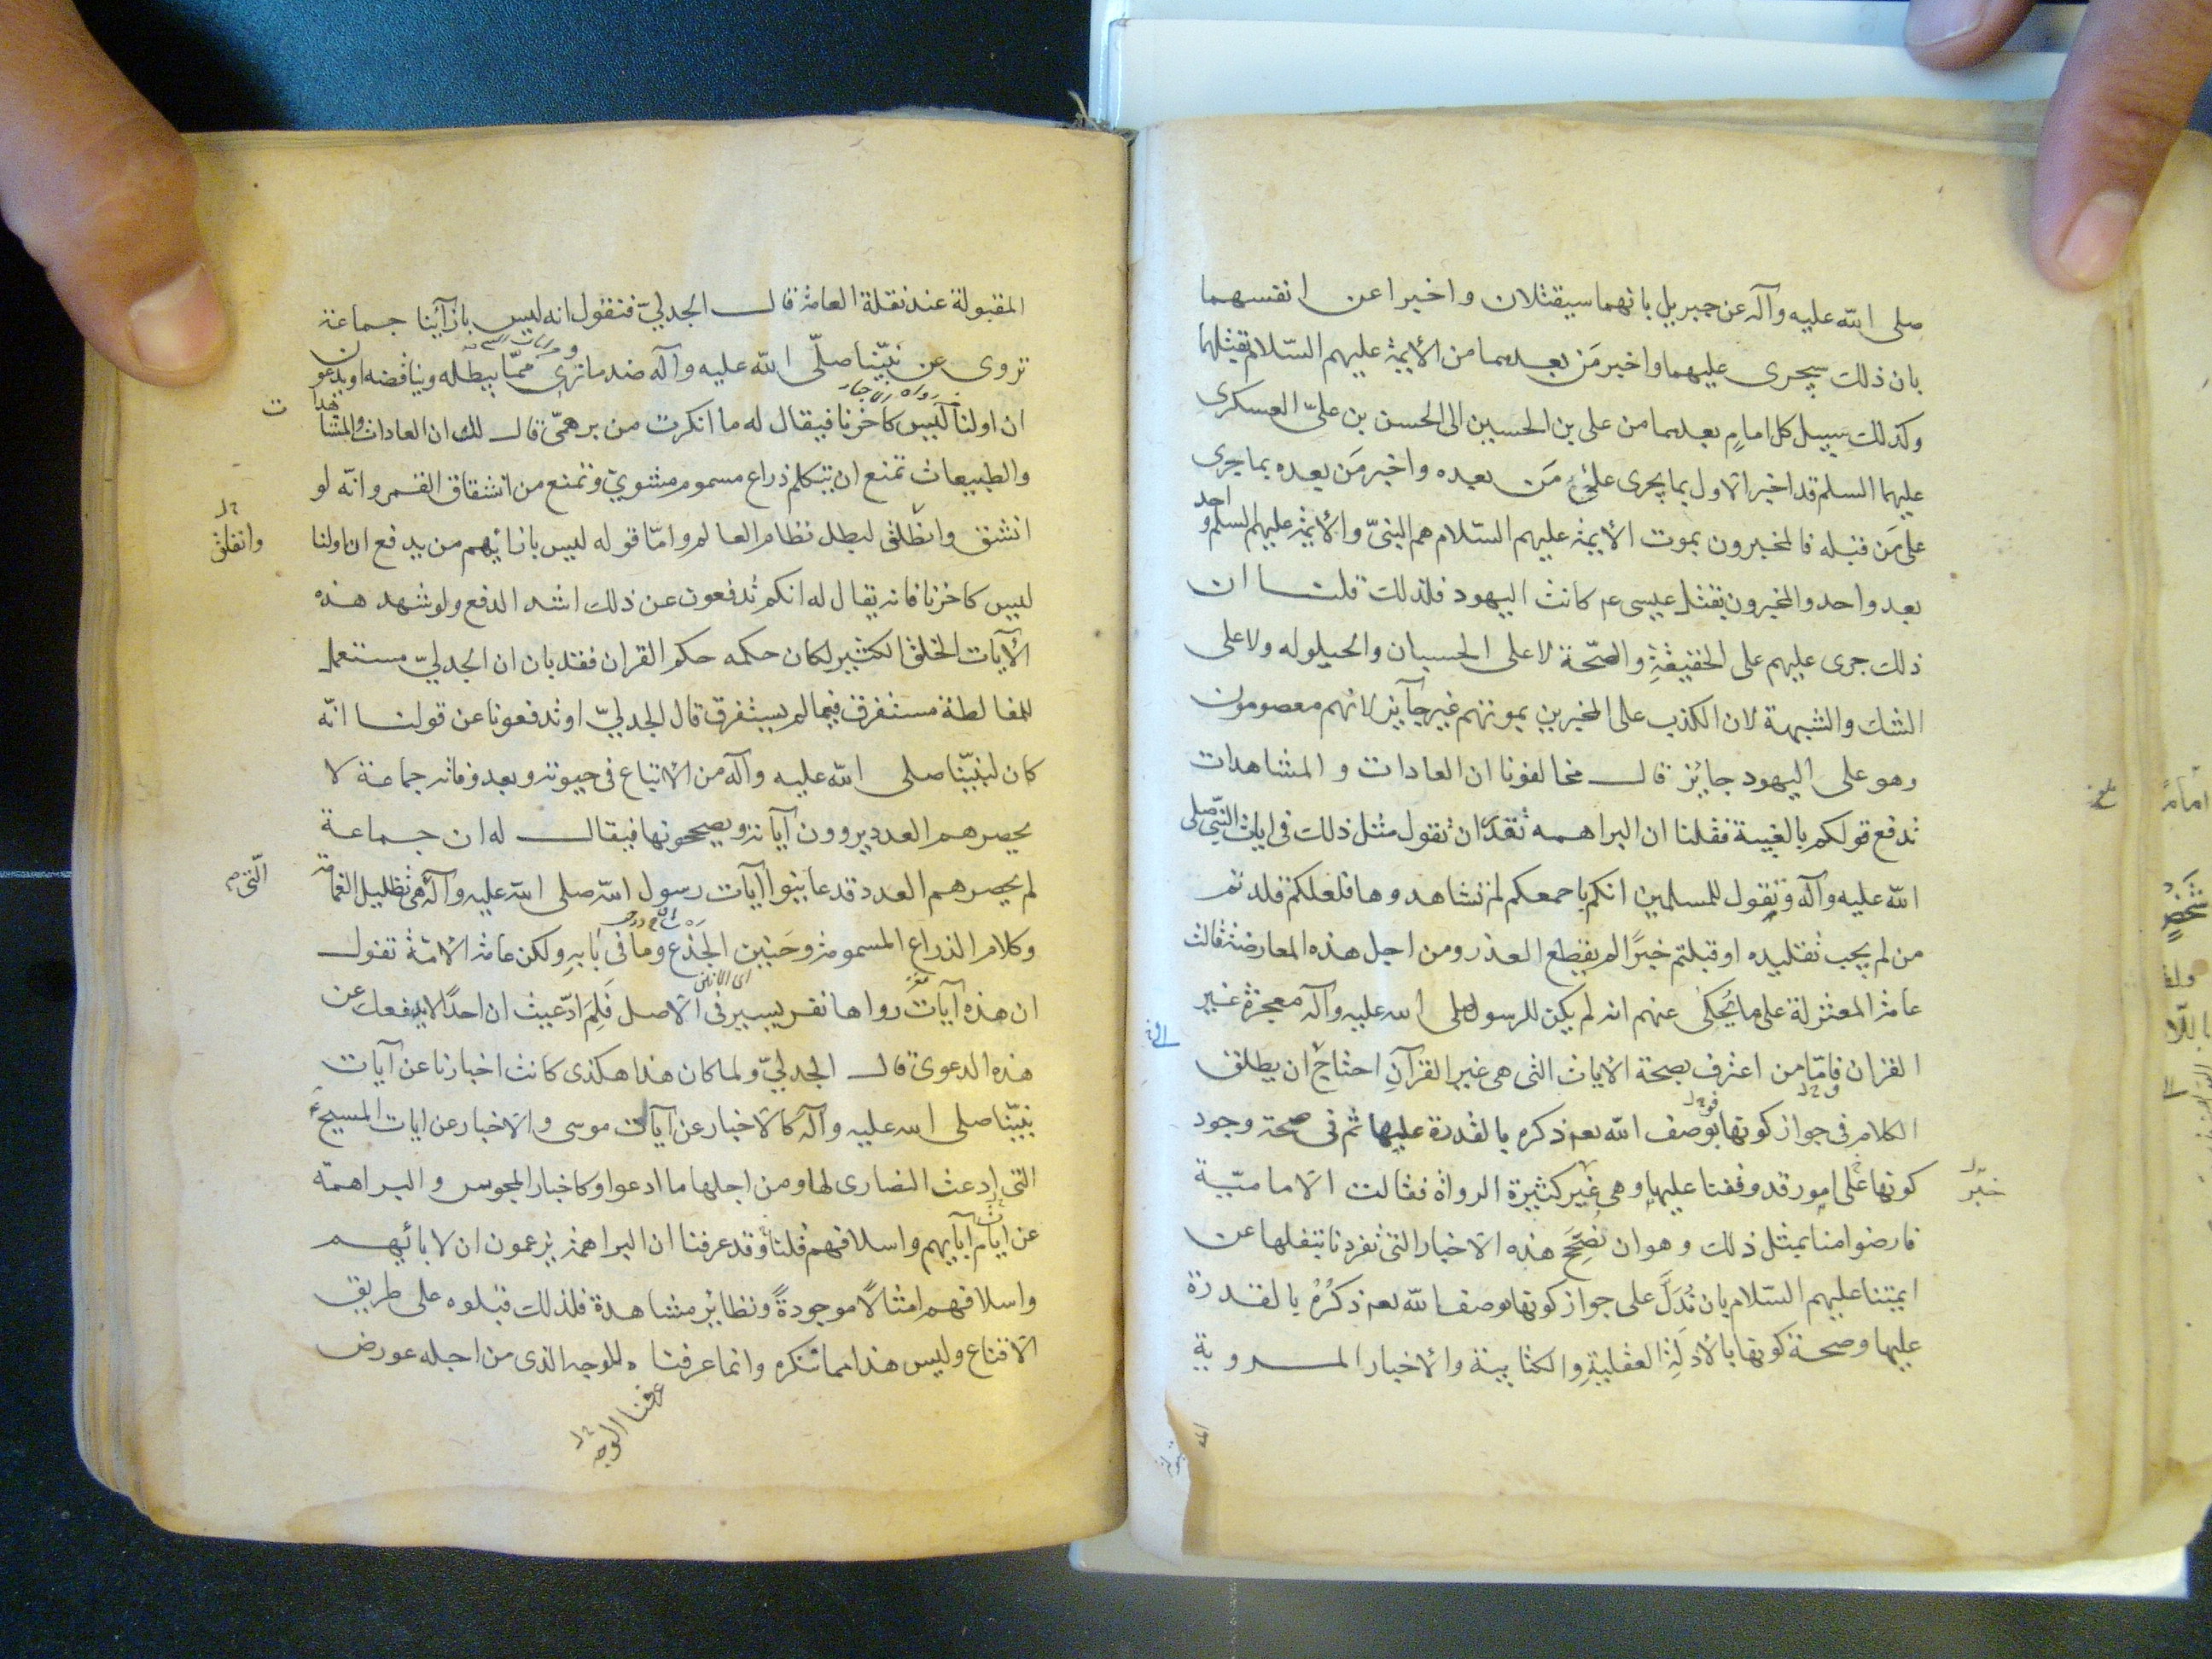 صلى الله عليه وآله عن جبريل بانهما سيقتلان واخبرا عن انفسهما
بان ذلك سيجرى عليهما واخبر مَن بعدهما من الأيمة عليهم السّلام بقتلهما
وكذلك سبيل كل امامٍ بعدهما من على بن الحسين الى الحسن بن علىّ العسكرى
عليهما السلم قد اخبر الاول بما يجرى على مَن بعده واخبر مَن بعده بما جرى
على مَن قبله فالمخبرون بموت الأيمة عليهم السّلام هم النبىّ والأيمة عليهم السلم واحد
بعد واحد والمخبرون بقتل عيسى عم كانت اليهود فلذلك قلنا ان
ذلك جرى عليهم على الحقيقةِ والصّحة لا على الحسبان والحيلوله ولا على
الشك والشبهة لان الكذب على المخبرين بموتهم غير جآيز لانهم معصومون
وهو على اليهود جايز قال مخالفونا ان العادات والمشاهدات
تدفع قولكم بالغيبة فقلنا ان البراهمه تقدر ان تقول مثل ذلك فى ايات النّبى صلى
الله عليه وآله وتقول للمسلمين انكم باجمعكم لم تشاهدوها فلعلكم قلدتم
من لم يجب تقليده او قبلتم خبرًا لم يقطع العذر ومن اجل هذه المعارضة قالت
عامة المعتزلة على ما يُحكى عنهم انه لم يكن للرسول صلى الله عليه وآله معجزة غير
القران فامّا من اعترف بصحة الايات التى هى غير القرآنِ احتاج ان يطلق
الكلام فى جواز كونها بوصف الله تعه ذكره بالقدرة عليها ثم فى صحة وجود
كونها على امور قد وقفنا عليها وهى غير كثيرة الرواة فقالت الاماميّة
خبّر
فارضوا منا بمثل ذلك وهو ان نُصَحِّحَ هذه الاخبار التى تفردنا بنقلها عن
ايمتنا عليهم السّلام بان تُدَلَّ على جواز كونها بوصف الله تعه ذكرُهُ بالقدرة
عليها وصحة كونها بالأدلةِ العقليةِ والكتابية والأخبار المروية
المقبولة عند نقلة العامة قال الجدلىّ فنقول انه ليس بازآئنا جماعة
تروى عن نبيّنا صلّى الله عليه وآله ضد ما نروى ممّا يبطله ويناقضه او يدعون
ان اولنا ليس كاخرنا فيقال له ما انكرت من برهمىّ قال لك ان العادات والمشاهدات
والطبيعات تمنع ان يتكلم ذراع مسموم مشوىّ وتمنع من انشقاق القمر وانّه لو
انشق وانطلق لبطل نظام العالم وامّا قوله ليس بازائهم من يدفع ان اولنا
وانفلق
ليس كاخرنا فانه يقال له انكم تدفعون عن ذلك اشد الدفع ولو شهد هذه
الأيات الخلق الكثير لكان حكمه حكم القران فقد بان ان الجدلىّ مستعمل
للمغالطة مستفرق فيما لم يستفرق قال الجدلىّ او تدفعونا عن قولنا انّه
كان لنبيّنا صلى الله عليه وآله من الاتباع فى حيوته وبعد وفاته جماعة لا
يحصرهم العدد يروون آياته ويصححونها فيقال له ان جماعة
لم يحصرهم العدد قد عاينوا آيات رسول الله صلى الله عليه وآله هى تظليل الغمامة
الّتى
وكلام الذراع المسمومة وحَنين الجذع وما فى بابهِ ولكن عامة الامّة تقول
ان هذه آيات رواها نفر يسير فى الاصل فَلِمَ ادّعيت ان احدًا لا يدفعك عن
هذه الدعوى قال الجدلىّ ولما كان هذا هكذى كانت اخبارنا عن آيات
نبيّنا صلى الله عليه وآله كالاخبار عن آيات موسى والاخبار عن ايات المسيح
التى ادعت النصارى لها ومن اجلها ما ادعوا وكاخبار المجوس والبراهمة
عن ايام آبآيهم واسلافهم قلنا قد عرفنا ان البراهمة يزعمون ان لابائهم
واسلافهم امثالًا موجودةً ونظاير مشاهدة فلذلك قبلوه على طريق
الاقناع وليس هذا مما ننكره وانما عرفناه للوجه الذى من اجله عورض
عرفنا الوجه